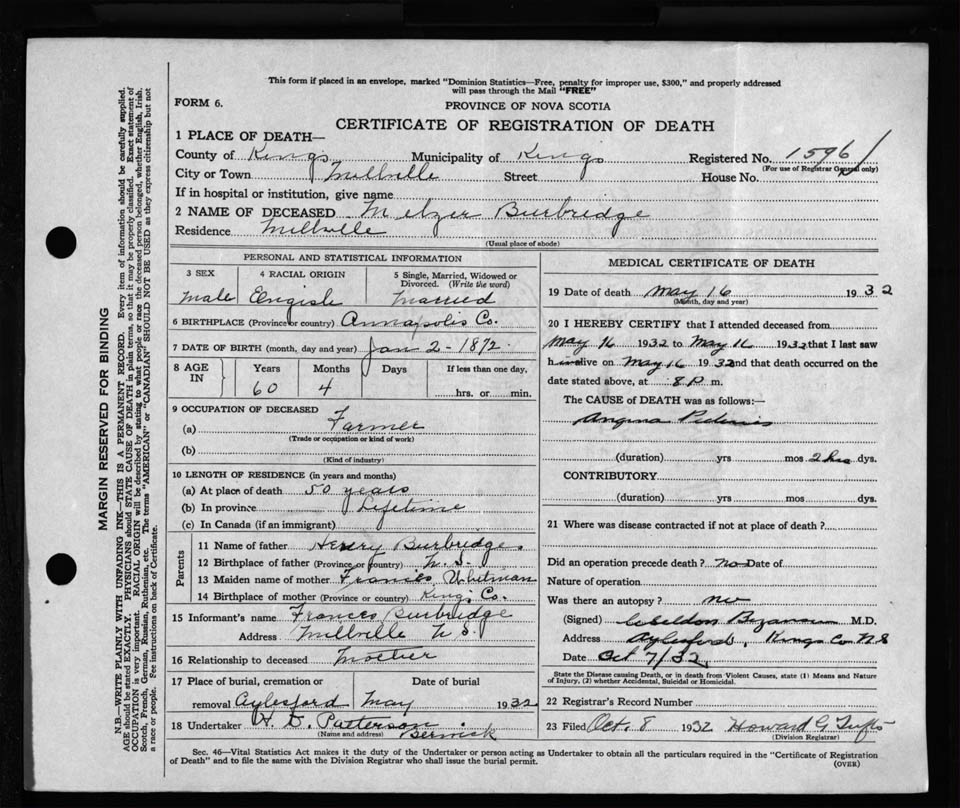 This form if placed in an envelope, marked "Dominion Statistics—Free, penalty for improper use, $300," and properly addressed
will pass through the Mail "FREE"
FORM 6.
PROVINCE OF NOVA SCOTIA
CERTIFICATE OF REGISTRATION OF DEATH
1 PLACE OF DEATH—
County of Kings Municipality of Kings Registered No. 1596
(For use of Registrar General only)
City or Town Millville Street House No.
If in hospital or institution, give name
2 NAME OF DECEASED Melzer Burbridge
Residence Millville
(Usual place of abode)
PERSONAL AND STATISTICAL INFORMATION
3 SEX 4 RACIAL ORIGIN 5 Single, Married, Widowed or Divorced. (Write the word)
Male Engish Married
6 BIRTHPLACE (Province or country) Annapolis Co.
7 DATE OF BIRTH (month, day and year) Jan 2 - 1872.
8 AGE IN Years Months Days If less than one day,
60 4 hrs. or min.
9 OCCUPATION OF DECEASED
(a) Farmer
(Trade or occupation or kind of work)
(b)
(Kind of industry)
10 LENGTH OF RESIDENCE (in years and months)
(a) At place of death 50 years
(b) In province Lifetime
(c) In Canada (if an immigrant)
Parents
11 Name of father Henry Burbridge
12 Birthplace of father (Province or country) N. S.
13 Maiden name of mother Frances Whitman
14 Birthplace of mother (Province or country) Kings Co.
15 Informant's name Frances Burbridge
Address Millville N S.
16 Relationship to deceased Mother
17 Place of burial, cremation or Date of burial
removal Aylesford May 1932
18 Undertaker H. D. Patterson Berwick
(Name and address)
MEDICAL CERTIFICATE OF DEATH
19 Date of death May 16 1932
(Month, day and year)
20 I HEREBY CERTIFY that I attended deceased from
May 16 1932 to May 16 1932 that I last saw
him alive on May 16 1932 and that death occurred on the
date stated above, at 8 P. m.
The CAUSE OF DEATH was as follows:—
Angina
(duration) yrs mos 2 hrs dys.
CONTRIBUTORY
(duration) yrs mos dys.
21 Where was disease contracted if not at place of death?
Did an operation precede death? no Date of
Nature of operation
Was there an autopsy? no
(Signed) M.D.
Address Aylesford, Kings Co N S
Date Oct 7/32
State the Disease causing Death, or in death from Violent Causes, state (1) Means and Nature
of Injury, (2) whether Accidental, Suicidal or Homicidal.
22 Registrar's Record Number
23 Filed Oct. 8 1932 Howard G Tufts
(Division Registrar)
Sec. 46—Vital Statistics Act makes it the duty of the Undertaker or person acting as Undertaker to obtain all the particulars required in the "Certificate of Registration
of Death" and to file the same with the Division Registrar who shall issue the burial permit.
(OVER)
MARGIN RESERVED FOR BINDING
N.B.—WRITE PLAINLY WITH UNFADING INK—THIS IS A PERMANENT RECORD. Every item of information should be carefully supplied.
AGE should be stated EXACTLY. PHYSICIANS should STATE CAUSE OF DEATH in plain terms, so that it may be properly classified. Exact statement of
OCCUPATION is very important. RACIAL ORIGIN will be described by stating to what people or race the deceased person belonged, whether English, Irish,
Scotch, French, German, Russian, Ruthenian, etc. The terms "AMERICAN" or "CANADIAN" SHOULD NOT BE USED as they express citizenship but not
a race or people. See instructions on back of Certificate.